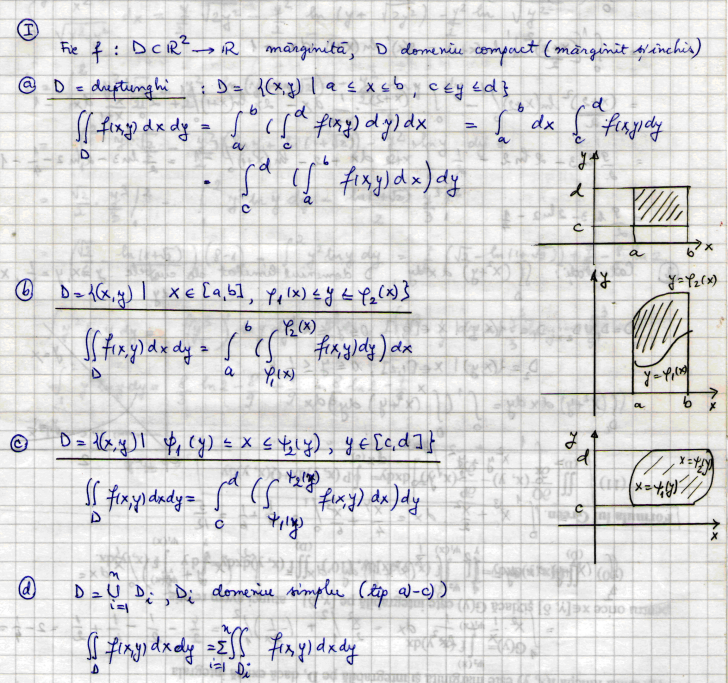 I
Fie f : D ⊂ ℝ² → ℝ mărginită, D domeniu compact (mărginit și închis)
a) D = dreptunghi : D = {(x,y) | a ≤ x ≤ b, c ≤ y ≤ d}
∬_D f(x,y) dx dy = ∫_a^b (∫_c^d f(x,y) dy) dx = ∫_a^b dx ∫_c^d f(x,y) dy
= ∫_c^d (∫_a^b f(x,y) dx) dy
y
d
c
a b x
b) D = {(x,y) | x ∈ [a,b], φ₁(x) ≤ y ≤ φ₂(x)}
∬_D f(x,y) dx dy = ∫_a^b (∫_{φ₁(x)}^{φ₂(x)} f(x,y) dy) dx
y y = φ₂(x)
y = φ₁(x)
a b x
c) D = {(x,y) | ψ₁(y) ≤ x ≤ ψ₂(y), y ∈ [c,d]}
∬_D f(x,y) dx dy = ∫_c^d (∫_{ψ₁(y)}^{ψ₂(y)} f(x,y) dx) dy
y
d x = ψ₂(y)
x = ψ₁(y)
c
x
d) D = ⋃_{i=1}^n D_i, D_i domeniu simplu (tip a)-c))
∬_D f(x,y) dx dy = Σ_{i=1}^n ∬_{D_i} f(x,y) dx dy